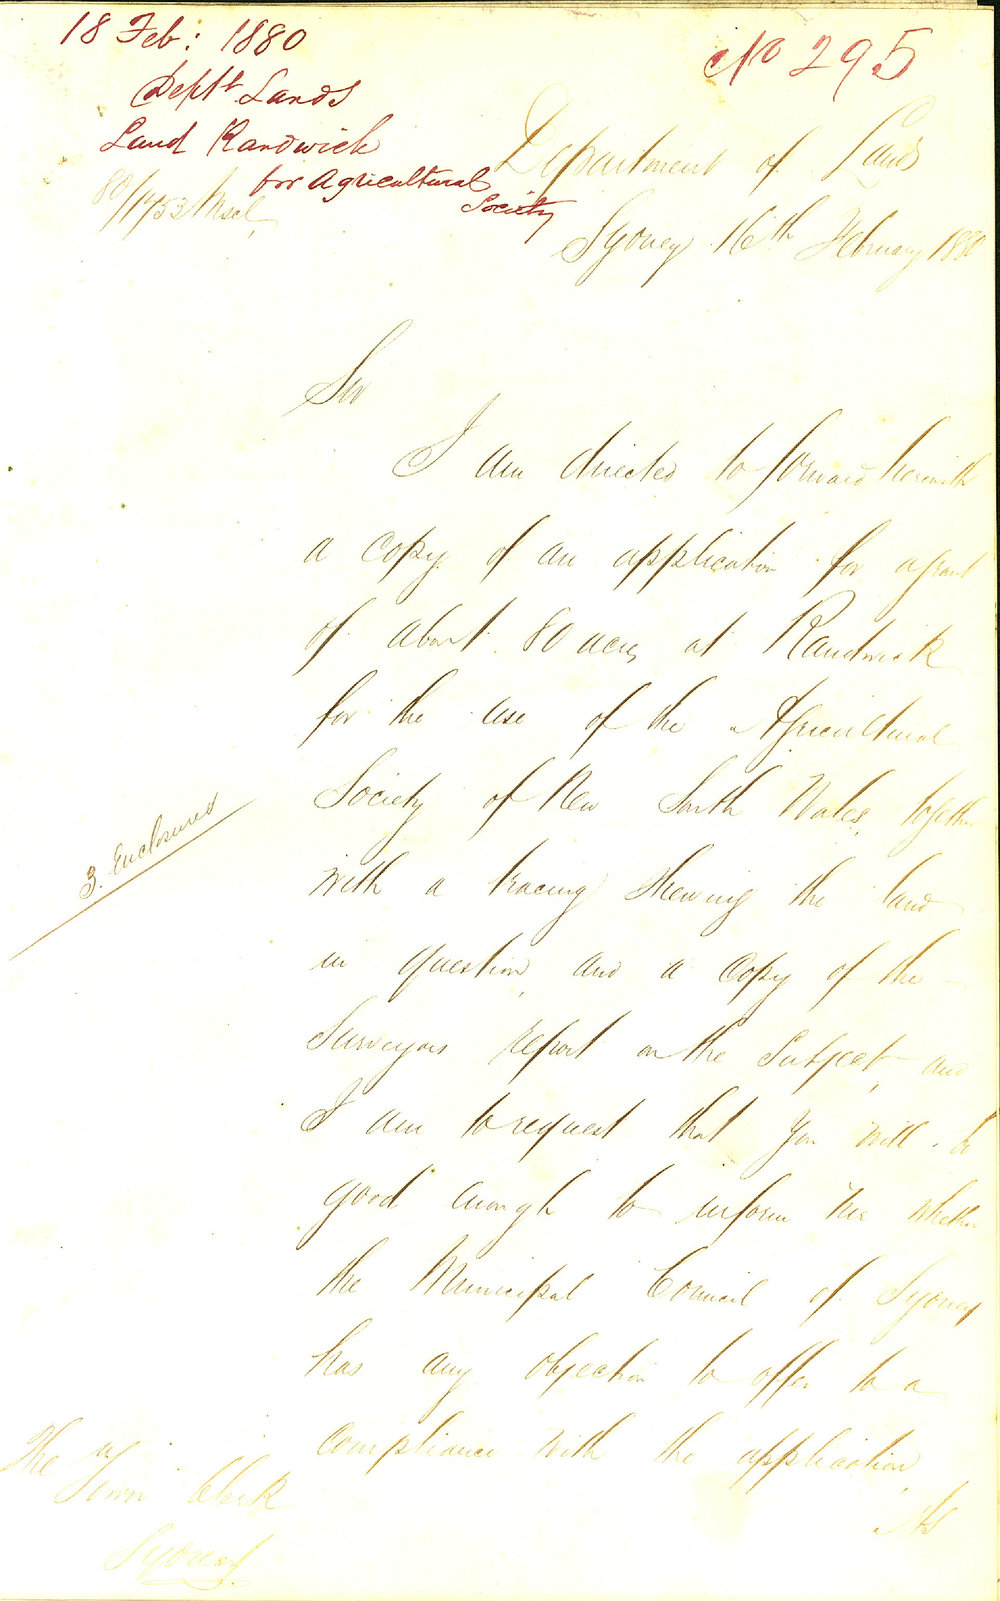 18 Feb: 1880
No 295
Deptt Lands
Land Randwick
for Agricultural
Society
80/1753 Miscl,
Department of Lands
Sydney 16th February 1880
Sir
I am directed to forward herewith
a copy of an application for a grant
of about 80 acres at Randwick
for the use of the Agricultural
Society of New South Wales, together
with a tracing shewing the land
in question, and a copy of the
Surveyors report on the subject, and
I am to request that you will be
good enough to inform me whether
the Municipal Council of Sydney
has any objection to offer to a
compliance with the application,
3. Enclosures
As
The
Town Clerk
Sydney